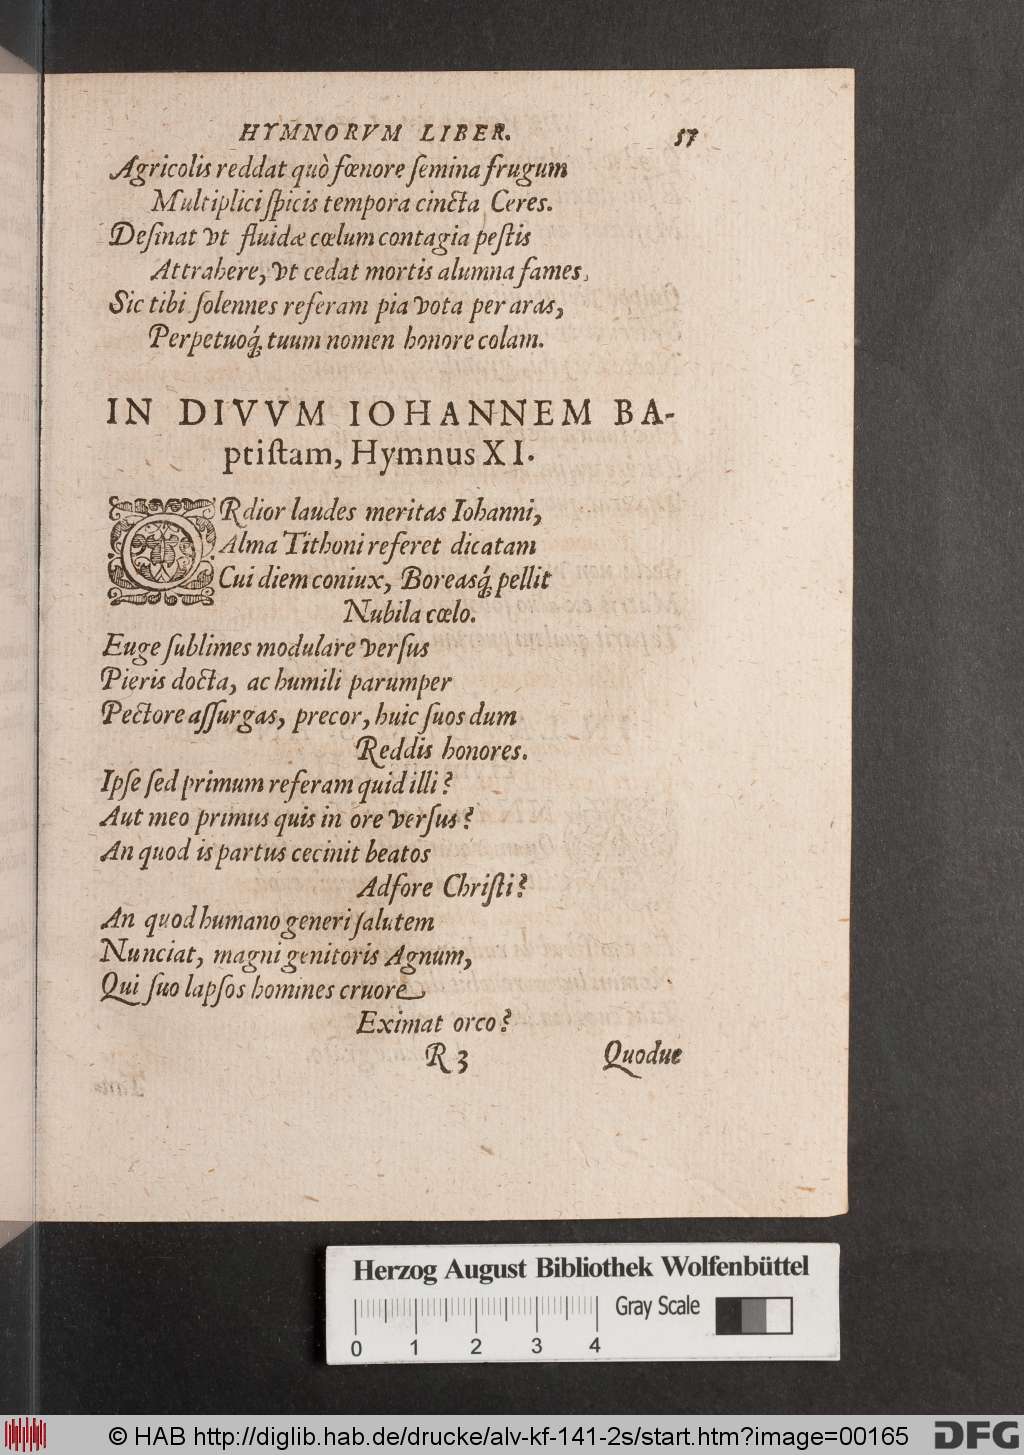 HYMNORVM LIBER. 57
Agricolis reddat quò fœnore ſemina frugum
Multiplici ſpicis tempora cincta Ceres.
Deſinat vt fluidæ cœlum contagia peſtis
Attrahere, vt cedat mortis alumna fames,
Sic tibi ſolennes referam pia vota per aras,
Perpetuoq́; tuum nomen honore colam.
IN DIVVM IOHANNEM BA-
ptiſtam, Hymnus XI.
ORdior laudes meritas Iohanni,
Alma Tithoni referet dicatam
Cui diem coniux, Boreasq́; pellit
Nubila cœlo.
Euge ſublimes modulare verſus
Pieris docta, ac humili parumper
Pectore aſſurgas, precor, huic ſuos dum
Reddis honores.
Ipſe ſed primum referam quid illi?
Aut meo primus quis in ore verſus?
An quod is partus cecinit beatos
Adfore Chriſti?
An quod humano generi ſalutem
Nunciat, magni genitoris Agnum,
Qui ſuo lapſos homines cruore
Eximat orco?
R 3 Quodue
Herzog August Bibliothek Wolfenbüttel
Gray Scale
0 1 2 3 4
© HAB http://diglib.hab.de/drucke/alv-kf-141-2s/start.htm?image=00165 DFG